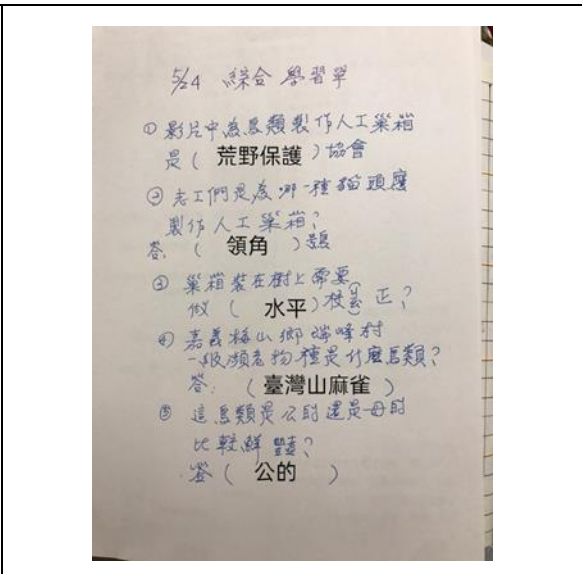 5/24 綜合 學習單
① 影片中為鳥類製作人工巢箱
是( 荒野保護 )協會
② 志工們是為哪一種貓頭鷹
製作人工巢箱?
答: ( 領角 )鴞
③ 巢箱裝在樹上需要
做( 水平 )校正?
④ 嘉義梅山鄉瑞峰村
一級瀕危物種是什麼鳥類?
答: (臺灣山麻雀 )
⑤ 這鳥類是公的還是母的
比較鮮豔?
答( 公的 )